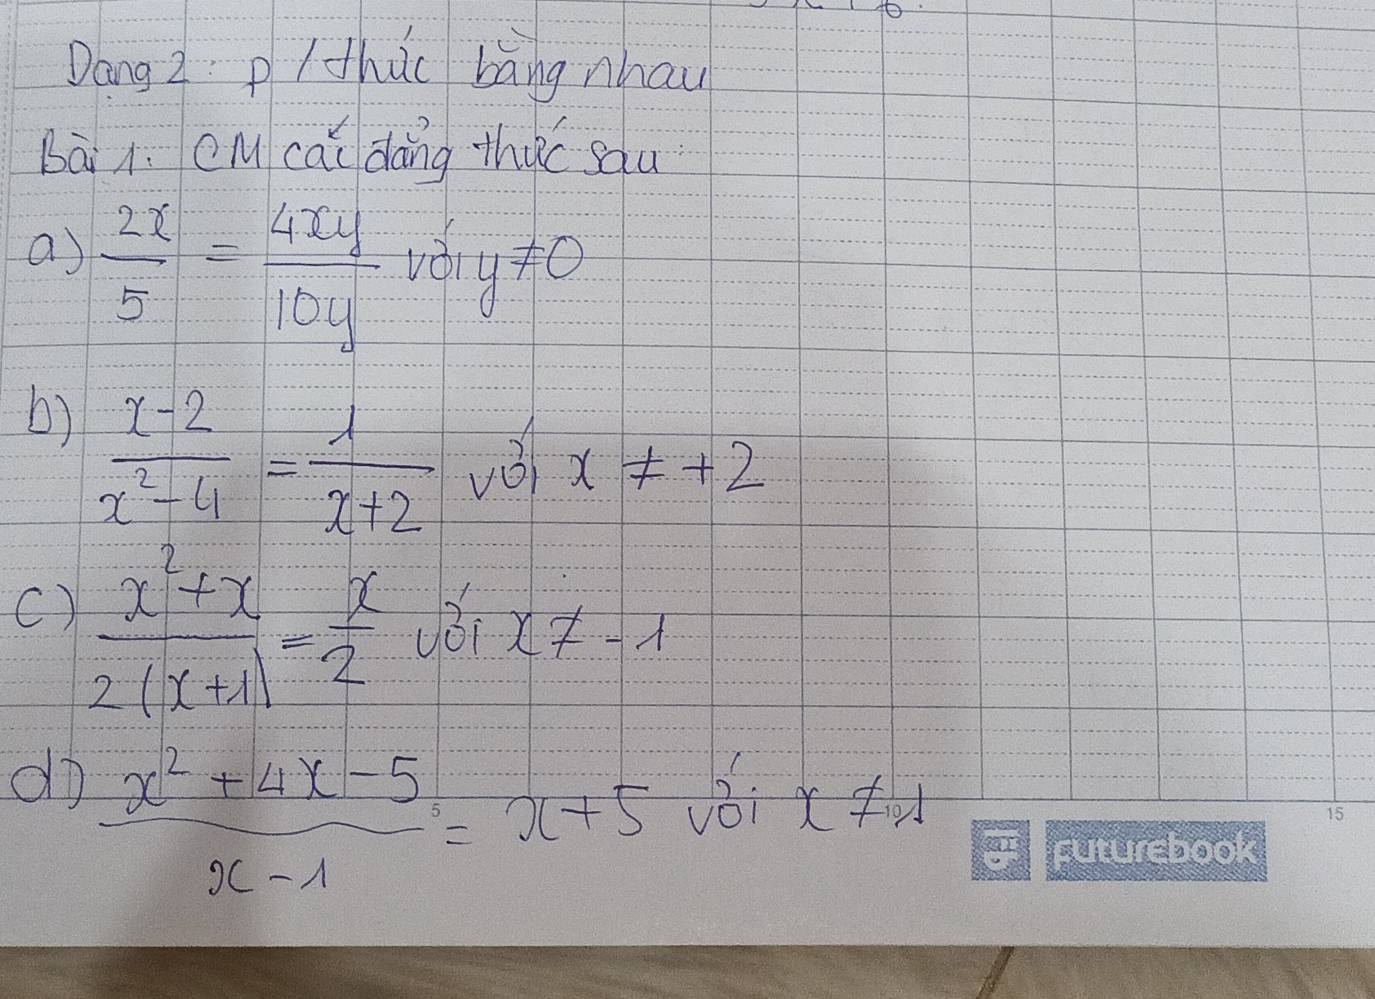 Dạng 2: p/thức bằng nhau
Bài 1. CM các đẳng thức sau:
a) 2x/5 = 4xy/10y với y ≠ 0
b) x-2/x²-4 = 1/x+2 với x ≠ +2
c) x²+x/2(x+1) = x/2 với x ≠ -1
d) x²+4x-5/x-1 = x+5 với x ≠ 1
5 10 15
futurebook